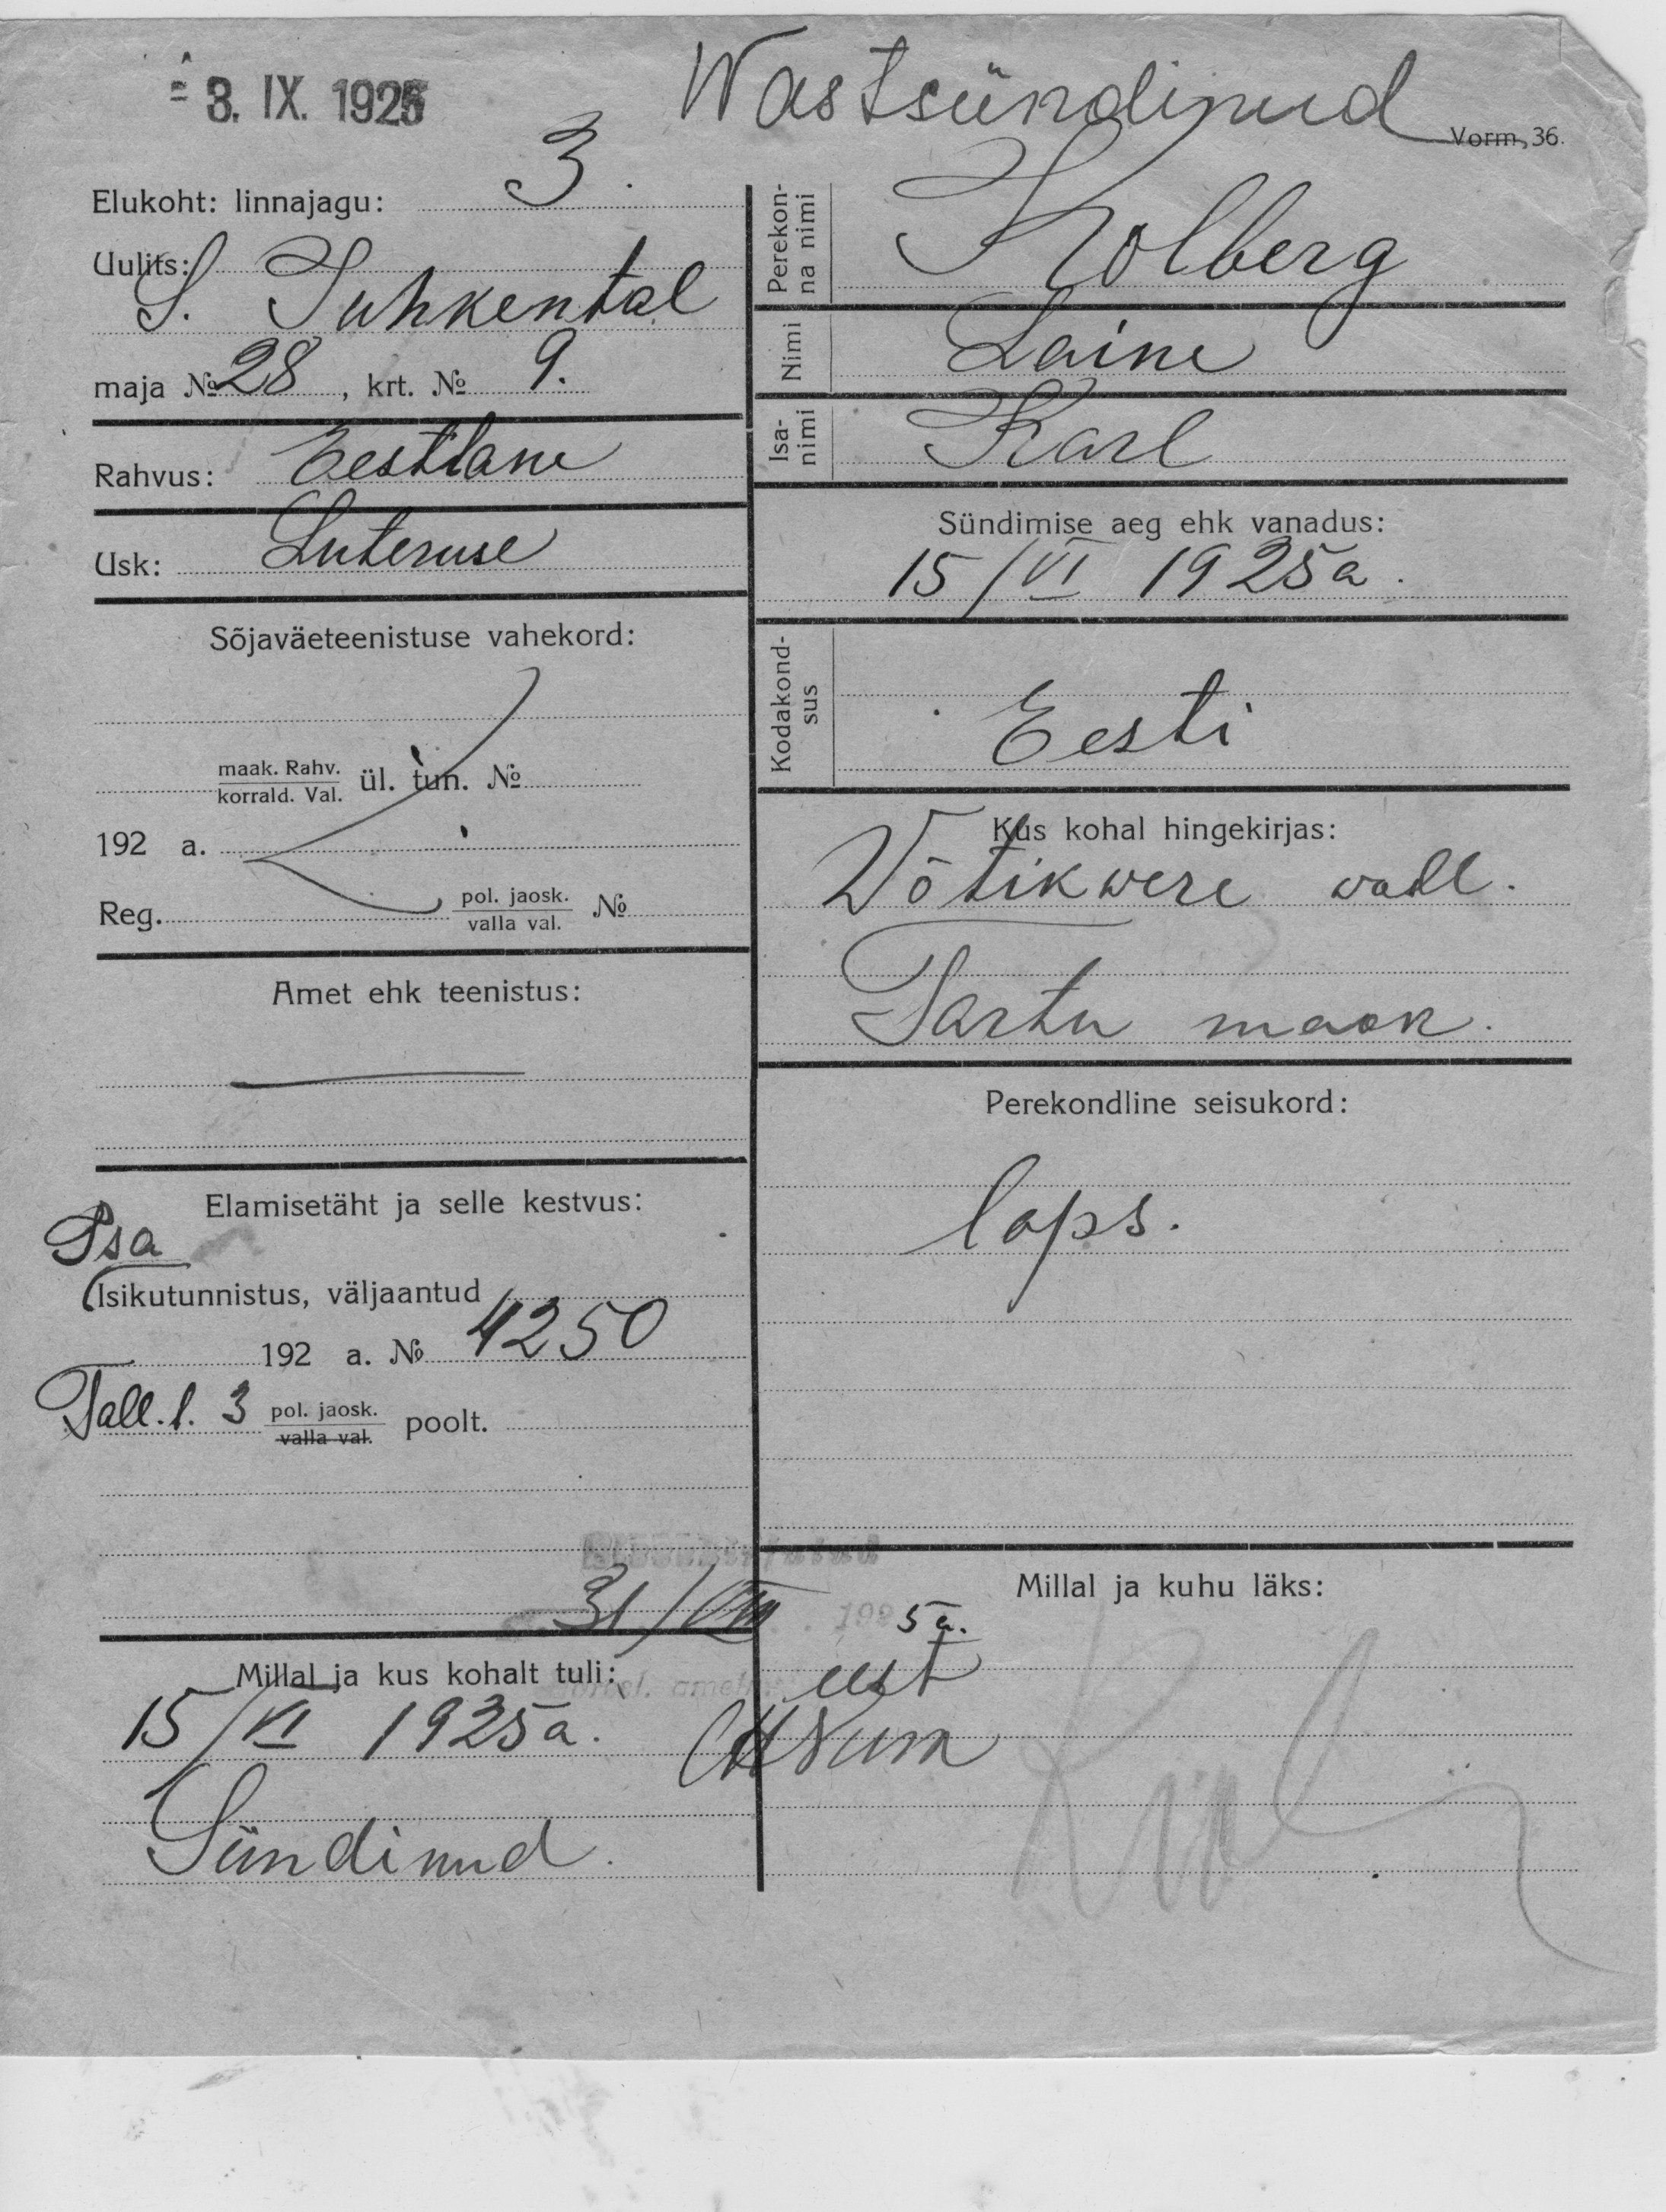 - 3. IX. 1925
Wastsündinud
Vorm. 36.
Elukoht: linnajagu: 3.
Uulits:
S. Juhkental
maja № 28, krt. № 9.
Rahvus: Eestlane
Usk: Luteruse
Sõjaväeteenistuse vahekord:
maak. Rahv.
korrald. Val.
ül. tun. №
192 a.
Reg.
pol. jaosk.
valla val.
№
Amet ehk teenistus:
Elamisetäht ja selle kestvus:
Isa
Isikutunnistus, väljaantud
192 a. № 4250
Tall. l. 3 pol. jaosk.
valla val.
poolt.
31/VIII 1925 a.
Millal ja kus kohalt tuli:
15/VI 1925 a.
Sündinud.
Perekon-
na nimi
Kolberg
Nimi
Laine
Isa-
nimi
Karl
Sündimise aeg ehk vanadus:
15/VI 1925 a.
Kodakond-
sus
Eesti
Kus kohal hingekirjas:
Võtikwere wall.
Tartu maak.
Perekondline seisukord:
laps.
Millal ja kuhu läks:
eest